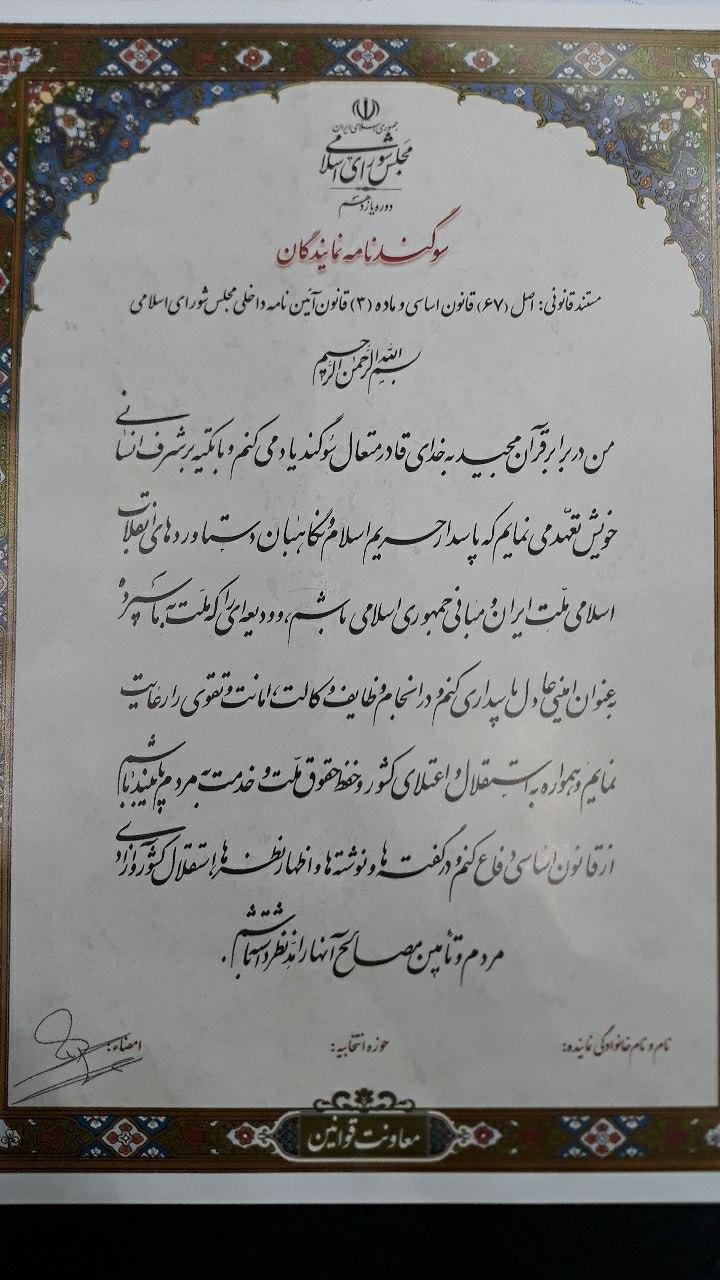 جمهوری اسلامی ایران
مجلس شورای اسلامی
دوره یازدهم
سوگندنامه نمایندگان
مستند قانونی: اصل (۶۷) قانون اساسی و ماده (۳) قانون آئین نامه داخلی مجلس شورای اسلامی
بسم الله الرحمن الرحیم
من در برابر قرآن مجید، به خدای قادر متعال سوگند یاد می کنم و با تکیه بر شرف انسانی
خویش تعهّد می نمایم که پاسدار حریم اسلام و نگاهبان دستاوردهای انقلاب
اسلامی ملّت ایران و مبانی جمهوری اسلامی باشم، و ودیعه ای را که ملّت به ما سپرده
به عنوان امینی عادل پاسداری کنم و در انجام وظایف وکالت، امانت و تقوی را رعایت
نمایم و همواره به استقلال و اعتلای کشور و حفظ حقوق ملّت و خدمت به مردم پایبند باشم
از قانون اساسی دفاع کنم و در گفته ها و نوشته ها و اظهارنظرها، استقلال کشور و آزادی
مردم و تأمین مصالح آنها را مدّنظر داشته باشم.
نام و نام خانوادگی نماینده: حوزه انتخابیه: امضاء:
معاونت قوانین